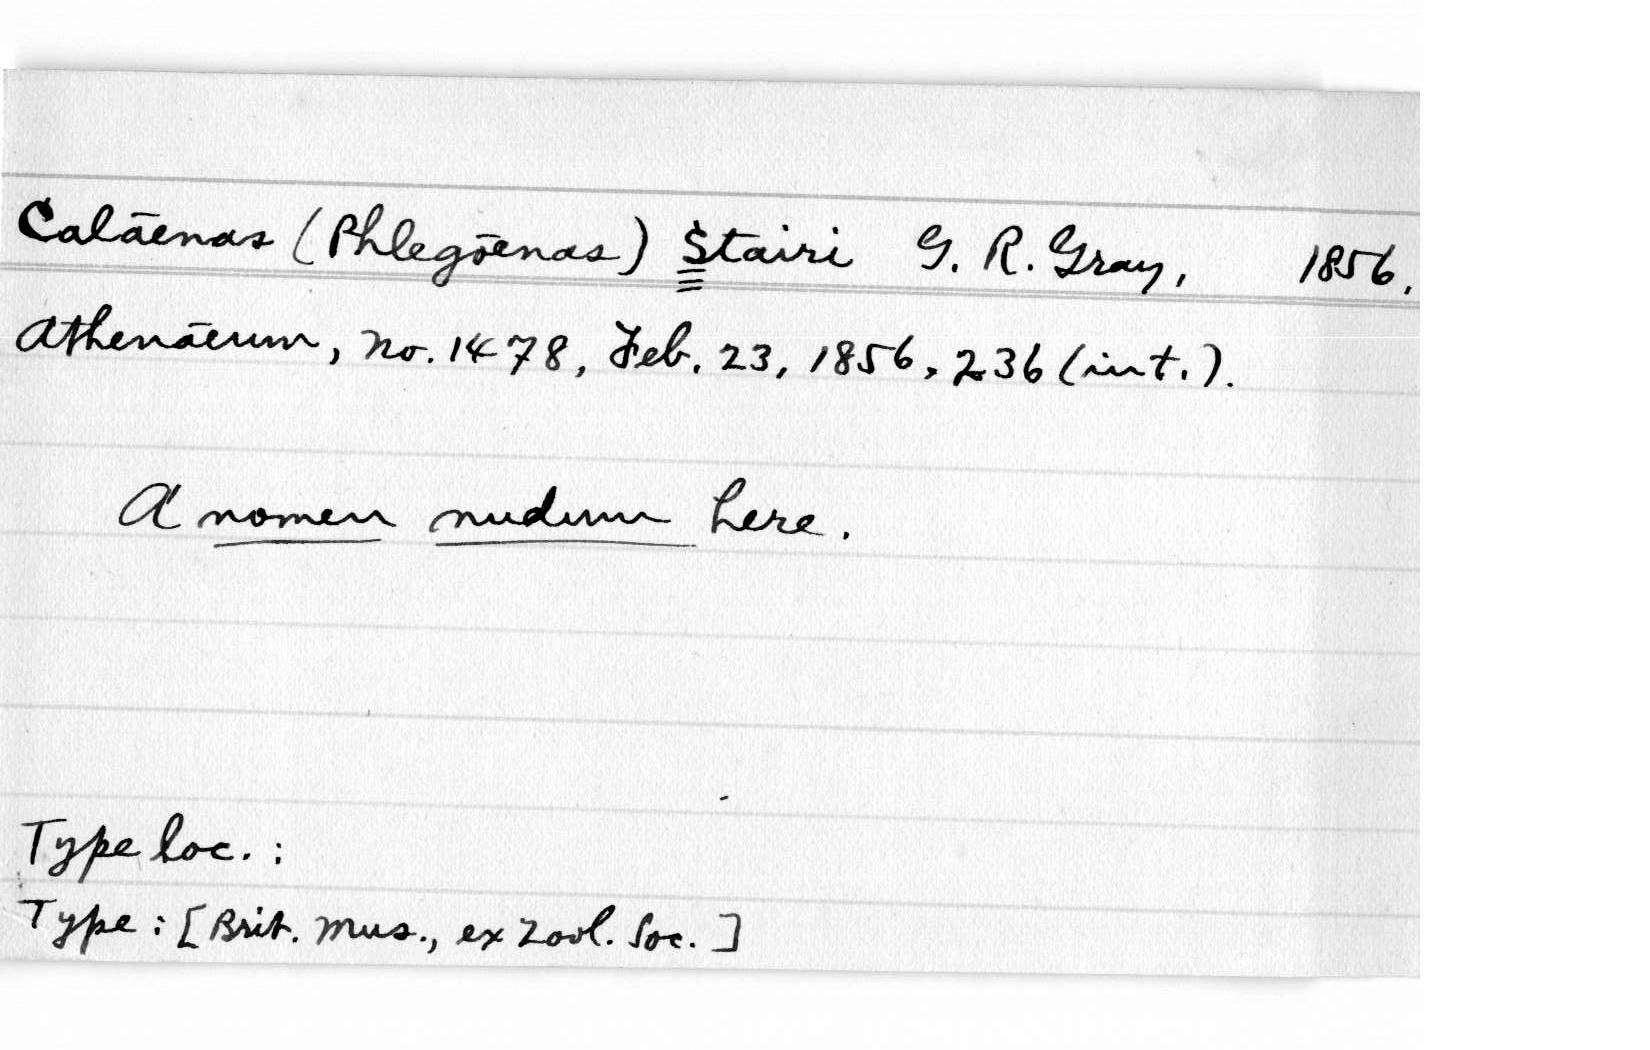 Calāenas (Phlegōenas) Stairi G. R. Gray, 1856.
Athenāeum, no. 1478, Feb. 23, 1856, 236 (int.).
A nomen nudum here.
Type loc. :
Type : [Brit. Mus., ex Zool. Soc. ]